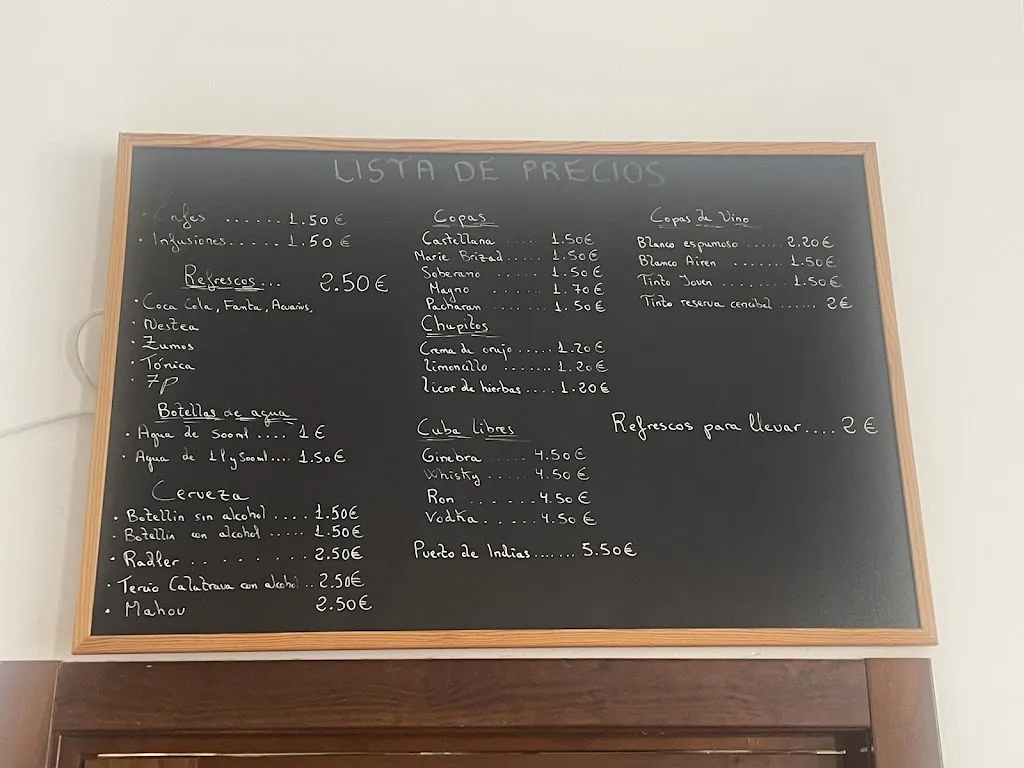 LISTA DE PRECIOS
· Cafes ...... 1.50€
· Infusiones..... 1.50€
Refrescos... 2.50€
· Coca Cola, Fanta, Acuarius,
· Nestea
· Zumos
· Tónica
· 7p
Botellas de agua
· Agua de 500ml .... 1€
· Agua de 1l y 500ml... 1.50€
Cerveza
· Botellin sin alcohol .... 1.50€
· Botellin con alcohol ..... 1.50€
· Radler . . . . . . . . 2.50€
· Tercio Calatrava con alcohol .. 2.50€
· Mahou 2.50€
Copas
Castellana ..... 1.50€
Marie Brizad..... 1.50€
Soberano ..... 1.50€
Magno ...... 1.70€
Pacharan ..... 1.50€
Chupitos
Crema de orujo ..... 1.20€
limoncillo ....... 1.20€
licor de hierbas .... 1.20€
Cuba libres
Ginebra ..... 4.50€
Whisky ..... 4.50€
Ron . . . . . . 4.50€
Vodka. . . . . 4.50€
Puerto de Indias....... 5.50€
Copas de Vino
Blanco espumoso ...... 2.20€
Blanco Airen ....... 1.50€
Tinto Joven ........ 1.50€
Tinto reserva cencibel ...... 2€
Refrescos para llevar.... 2€